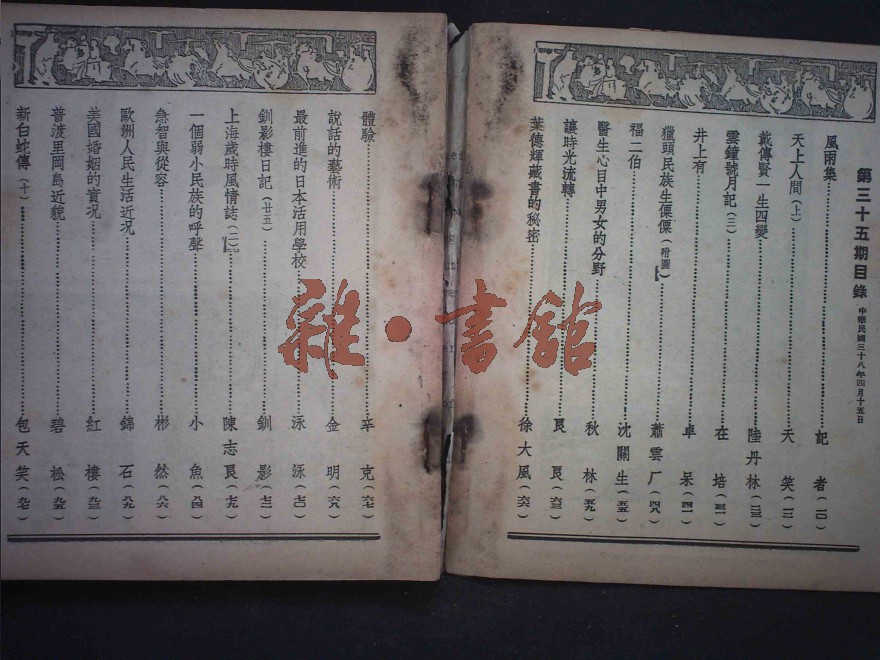 第三十五期目錄 中華民國三十八年四月十五日
風雨集 記者
天上人間(上) 天笑
戴傳賢一生四變 陸丹林
雲鐘號月記(三) 在培
井上有 卓呆
獵頭民族生傈僳(附圖) 蕭雲厂
福二伯 沈關生
醫生心目中男女的分野 秋林
讓時光流轉 艮艮
葉德輝藏書的秘密 徐大風
體驗 辛克
說話的藝術 金明
最前進的日本活用學校 泳泳
釧影樓日記(廿五) 釧影
上海歲時風情誌(二) 陳志艮
一個弱小民族的呼聲 小魚
急智與從容 彬然
歐洲人民生活近况 錦石
美國婚姻的實况 紅樓
普渡里岡島近貌 碧松
新白蛇傳(十) 包天笑
雜·書館